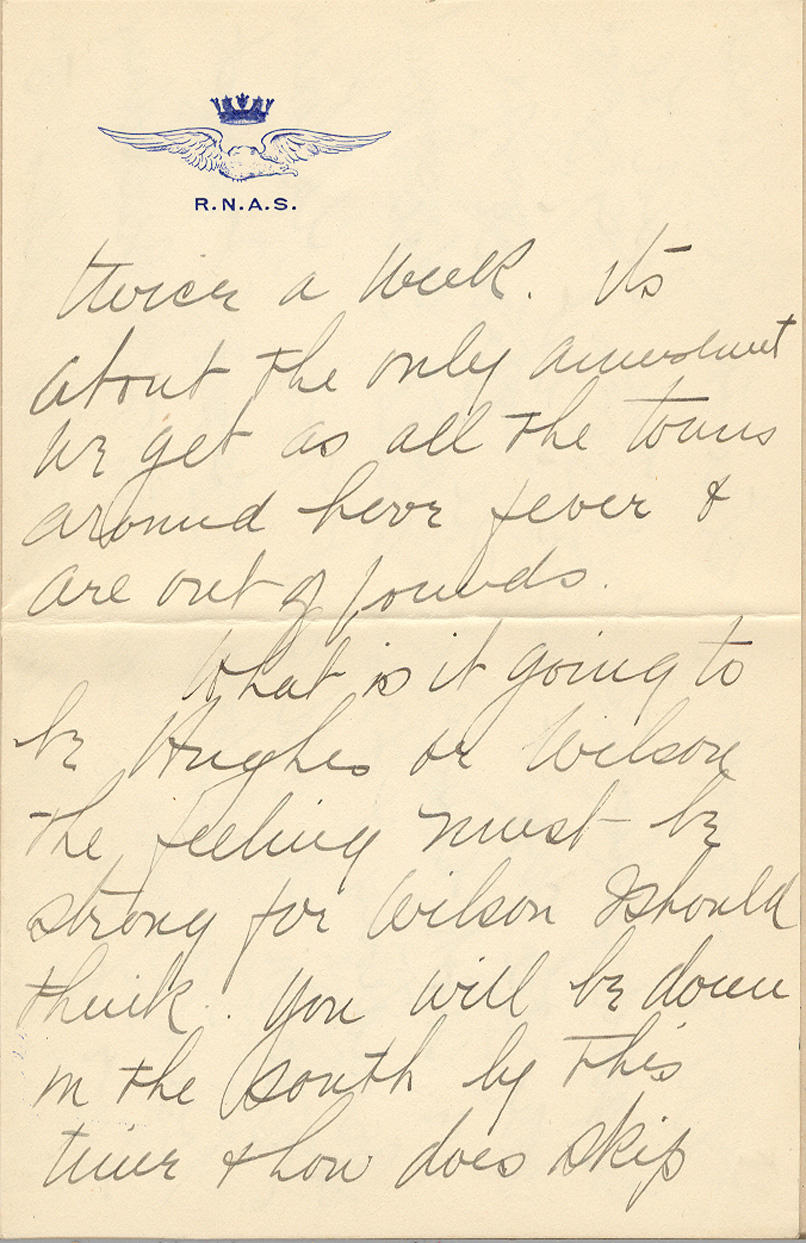 R.N.A.S.
twice a week. its
about the only amusement
we get as all the towns
around have fever &
are out of bounds.
What is it going to
be Hughes or Wilson
the feeling must be
strong for Wilson I should
think. You will be down
in the south by this
time & how does skip